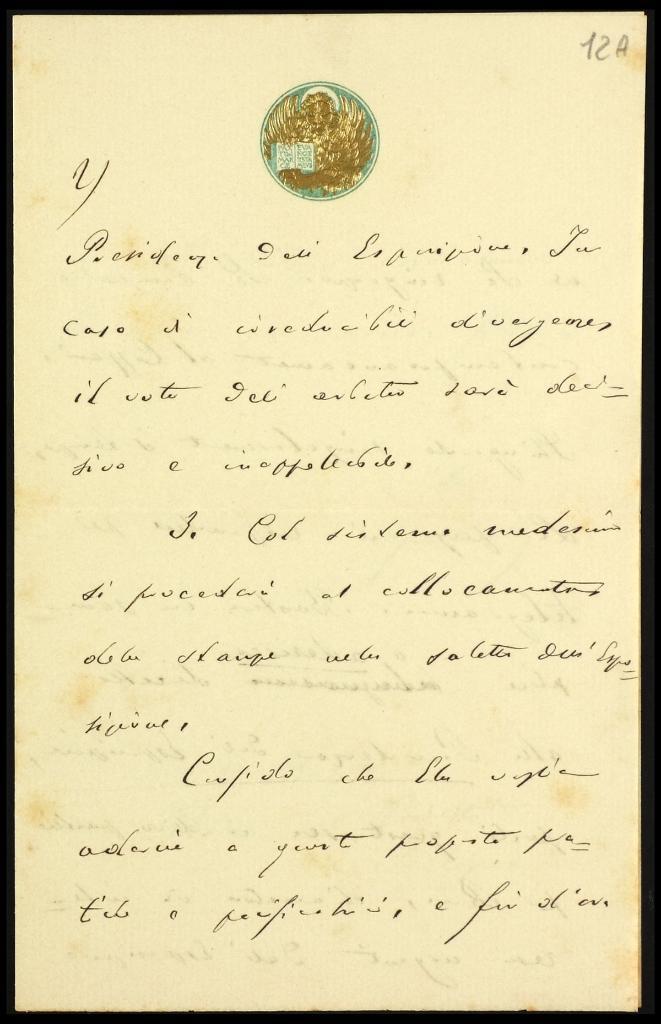 12A
PAX TIBI MAR CE EVAN GE LISTA MEUS
2)
Presidenza dell'Esposizione. In
caso di irreducibili divergenze,
il voto dell'arbitro sarà deci=
sivo e inappellabile.
3. Col sistema medesimo
si procederà al collocamento
delle stampe nella saletta dell'Espo=
sizione.
Confido che Ella voglia
aderire a queste proposte pra=
tiche e pacificatrici, e fin d'ora